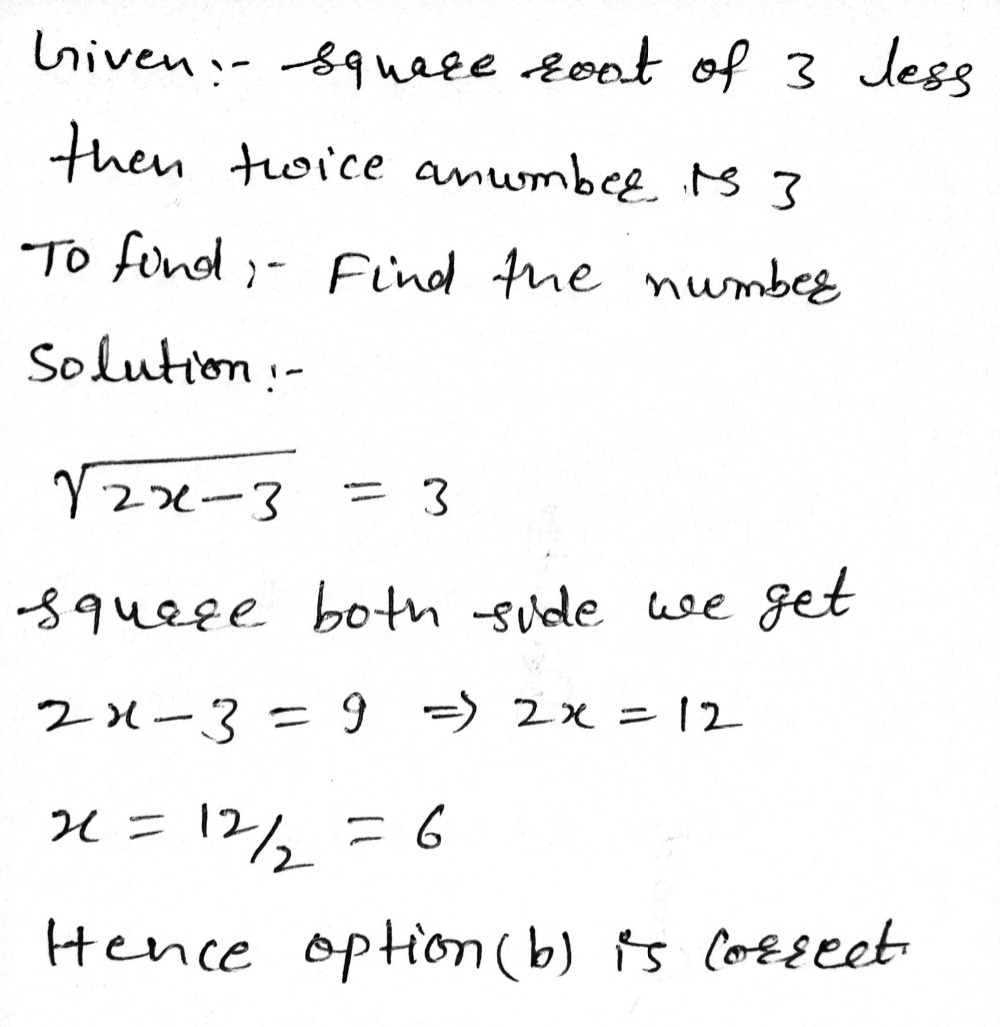 Given :- square root of 3 less
then twice anumber is 3
To find ;- Find the number
Solution :-
√2x-3 = 3
square both side we get
2x-3 = 9 => 2x = 12
x = 12/2 = 6
Hence option (b) is correct